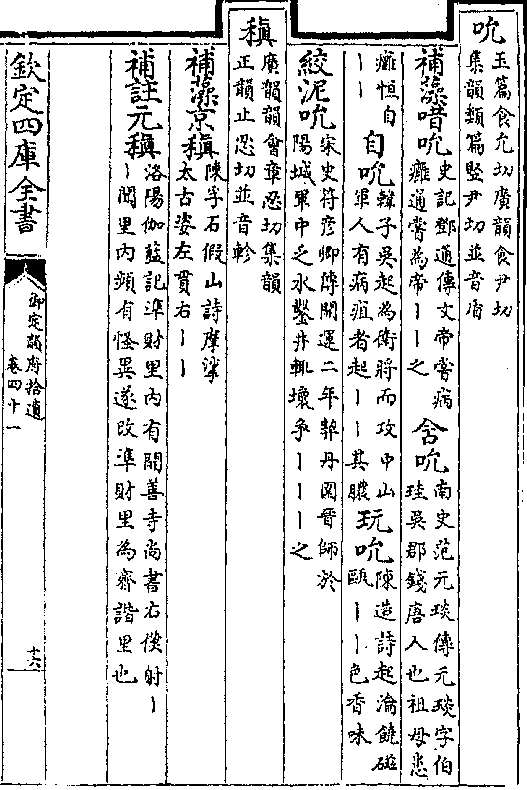 吮玉篇食允切廣韻食尹切
集韻類篇豎尹切並音盾
補藻唶吮史記鄧通傳文帝嘗病
癰通嘗為帝丨丨之
含吮南史范元琰傳元琰字伯
珪吳郡錢唐人也祖母患
癰恒自
丨丨
自吮韓子吳起為衛將而攻中山
軍人有病疽者起丨丨其膿
玩吮陳造詩起瀹饒磁
甌丨丨色香味
絞泥吮宋史符彦卿傳開運二年契丹圍晉師於
陽城軍中乏水鑿井輒壞爭丨丨丨之
稹廣韻韻會章忍切集韻
正韻止忍切並音軫
補藻京稹陳孚石假山詩摩挲
太古姿左賈右丨丨
補註元稹洛陽伽藍記準財里內有開善寺尚書右僕射丨
丨閭里內頻有怪異遂改準財里為齊諧里也
欽定四庫全書
御定韻府拾遺
卷四十一
十六